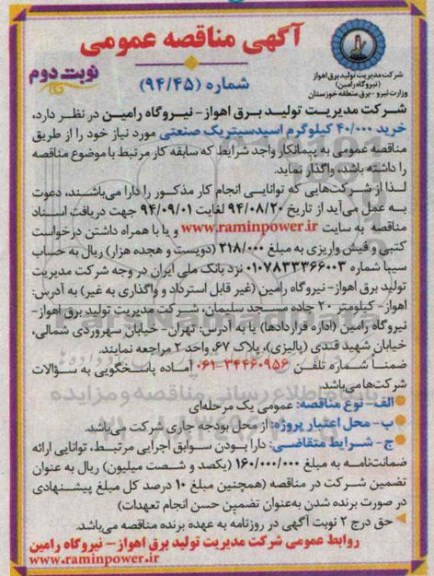 آگهی مناقصه عمومی
نوبت دوم
شماره (۹۴/۴۵)
شرکت مدیریت تولید برق اهواز
(نیروگاه رامین)
وزارت نیرو - برق منطقه خوزستان
شرکت مدیریت تولید برق اهواز- نیروگاه رامین در نظر دارد،
خرید ۴۰/۰۰۰ کیلوگرم اسیدسیتریک صنعتی مورد نیاز خود را از طریق
مناقصه عمومی به پیمانکار واجد شرایط که سابقه کار مرتبط با موضوع مناقصه
را داشته باشد، واگذار نماید.
لذا از شرکت‌هایی که توانایی انجام کار مذکور را دارا می‌باشند، دعوت
به عمل می‌آید از تاریخ ۹۴/۰۸/۲۰ لغایت ۹۴/۰۹/۰۱ جهت دریافت اسناد
مناقصه به سایت www.raminpower.ir و یا با همراه داشتن درخواست
کتبی و فیش واریزی به مبلغ ۲۱۸/۰۰۰ (دویست و هجده هزار) ریال به حساب
سیبا شماره ۰۱۰۷۸۳۳۳۶۶۰۰۳ نزد بانک ملی ایران در وجه شرکت مدیریت
تولید برق اهواز- نیروگاه رامین (غیر قابل استرداد و واگذاری به غیر) به آدرس:
اهواز- کیلومتر ۲۰ جاده مسجد سلیمان، شرکت مدیریت تولید برق اهواز-
نیروگاه رامین (اداره قراردادها) یا به آدرس: تهران- خیابان سهروردی شمالی،
خیابان شهید قندی (پالیزی)، پلاک ۶۷، واحد ۲ مراجعه نمایند.
ضمناً شماره تلفن ۳۴۴۶۰۹۵۶-۰۶۱ آماده پاسخگویی به سؤالات
شرکت‌ها می‌باشد.
الف- نوع مناقصه: عمومی یک مرحله‌ای
ب- محل اعتبار پروژه: از محل بودجه جاری شرکت می‌باشد.
ج- شرایط متقاضی: دارا بودن سوابق اجرایی مرتبط، توانایی ارائه
ضمانت‌نامه به مبلغ ۱۶۰/۰۰۰/۰۰۰ (یکصد و شصت میلیون) ریال به عنوان
تضمین شرکت در مناقصه (همچنین مبلغ ۱۰ درصد کل مبلغ پیشنهادی
در صورت برنده شدن به‌عنوان تضمین حسن انجام تعهدات)
حق درج ۲ نوبت آگهی در روزنامه به عهده برنده مناقصه می‌باشد.
روابط عمومی شرکت مدیریت تولید برق اهواز - نیروگاه رامین
www.raminpower.ir